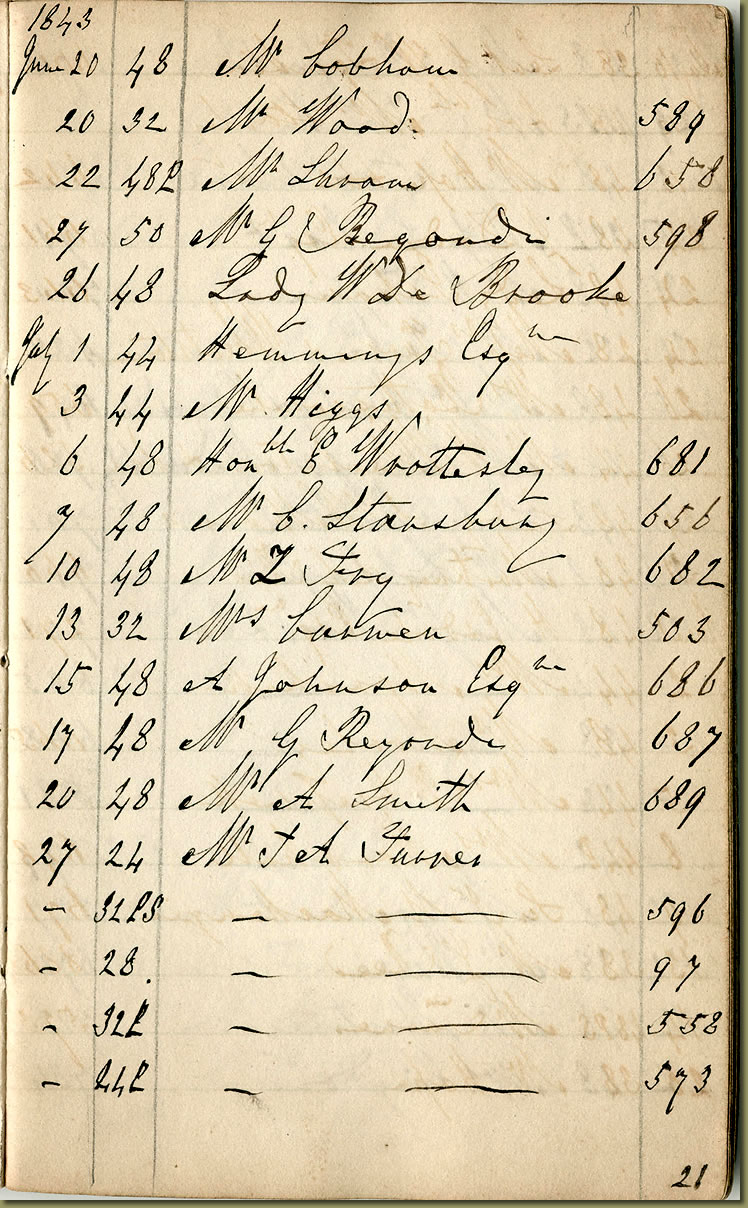 1843
June 20 48 Mr Cobham
20 32 Mr Wood. 589
22 48P Mr 658
27 50 Mr G Regondi 598
26 48 Lady W De Brooke
July 1 44 Hemmings Esqre
3 44 Mr Higgs
6 48 Honble E Wrottesley 681
7 48 Mr C. Stansbury 656
10 48 Mr Fry 682
13 32 Mrs Curwen 503
15 48 A Johnson Esqre 686
17 48 Mr G Regondi 687
20 48 Mr A Smith 689
27 24 Mr J A Turner
- 32PS — — 596
- 28. — — 97
- 32P — — 558
- 44P — — 573
21